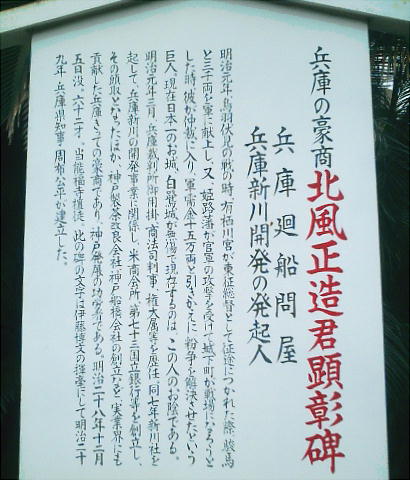 兵庫の豪商北風正造君顕彰碑
兵庫廻船問屋
兵庫新川開発の発起人
明治元年、鳥羽伏見の戦の時、有栖川宮が東征総督として征途につかれた際、駿馬
と三千両を軍に献上し、又、姫路藩が官軍の攻撃を受けて城下町が戦場になろうと
した時、彼が仲裁に入り、軍需金十五万両と引きかえに紛争を解決させたという
巨人。現在日本一のお城、白鷺城が無傷で現存するのは、この人のお陰である。
明治元年三月、兵庫裁判所御用掛、商法司判事、権大属等を歴任、同七年新川社を
起して、兵庫新川の開発事業に関係し、米商会所、第七十三国立銀行等を創立し、
その頭取となったほか、神戸製茶改良会社、神戸船橋会社の創立など、実業界にも
貢献した兵庫きっての豪商であり、神戸発展の功労者である。明治二十八年十二月
五日没。六十二才。当能福寺檀徒。此の碑の文字は伊藤博文の揮毫にして明治二十
九年、兵庫県知事・周布公平が建立した。